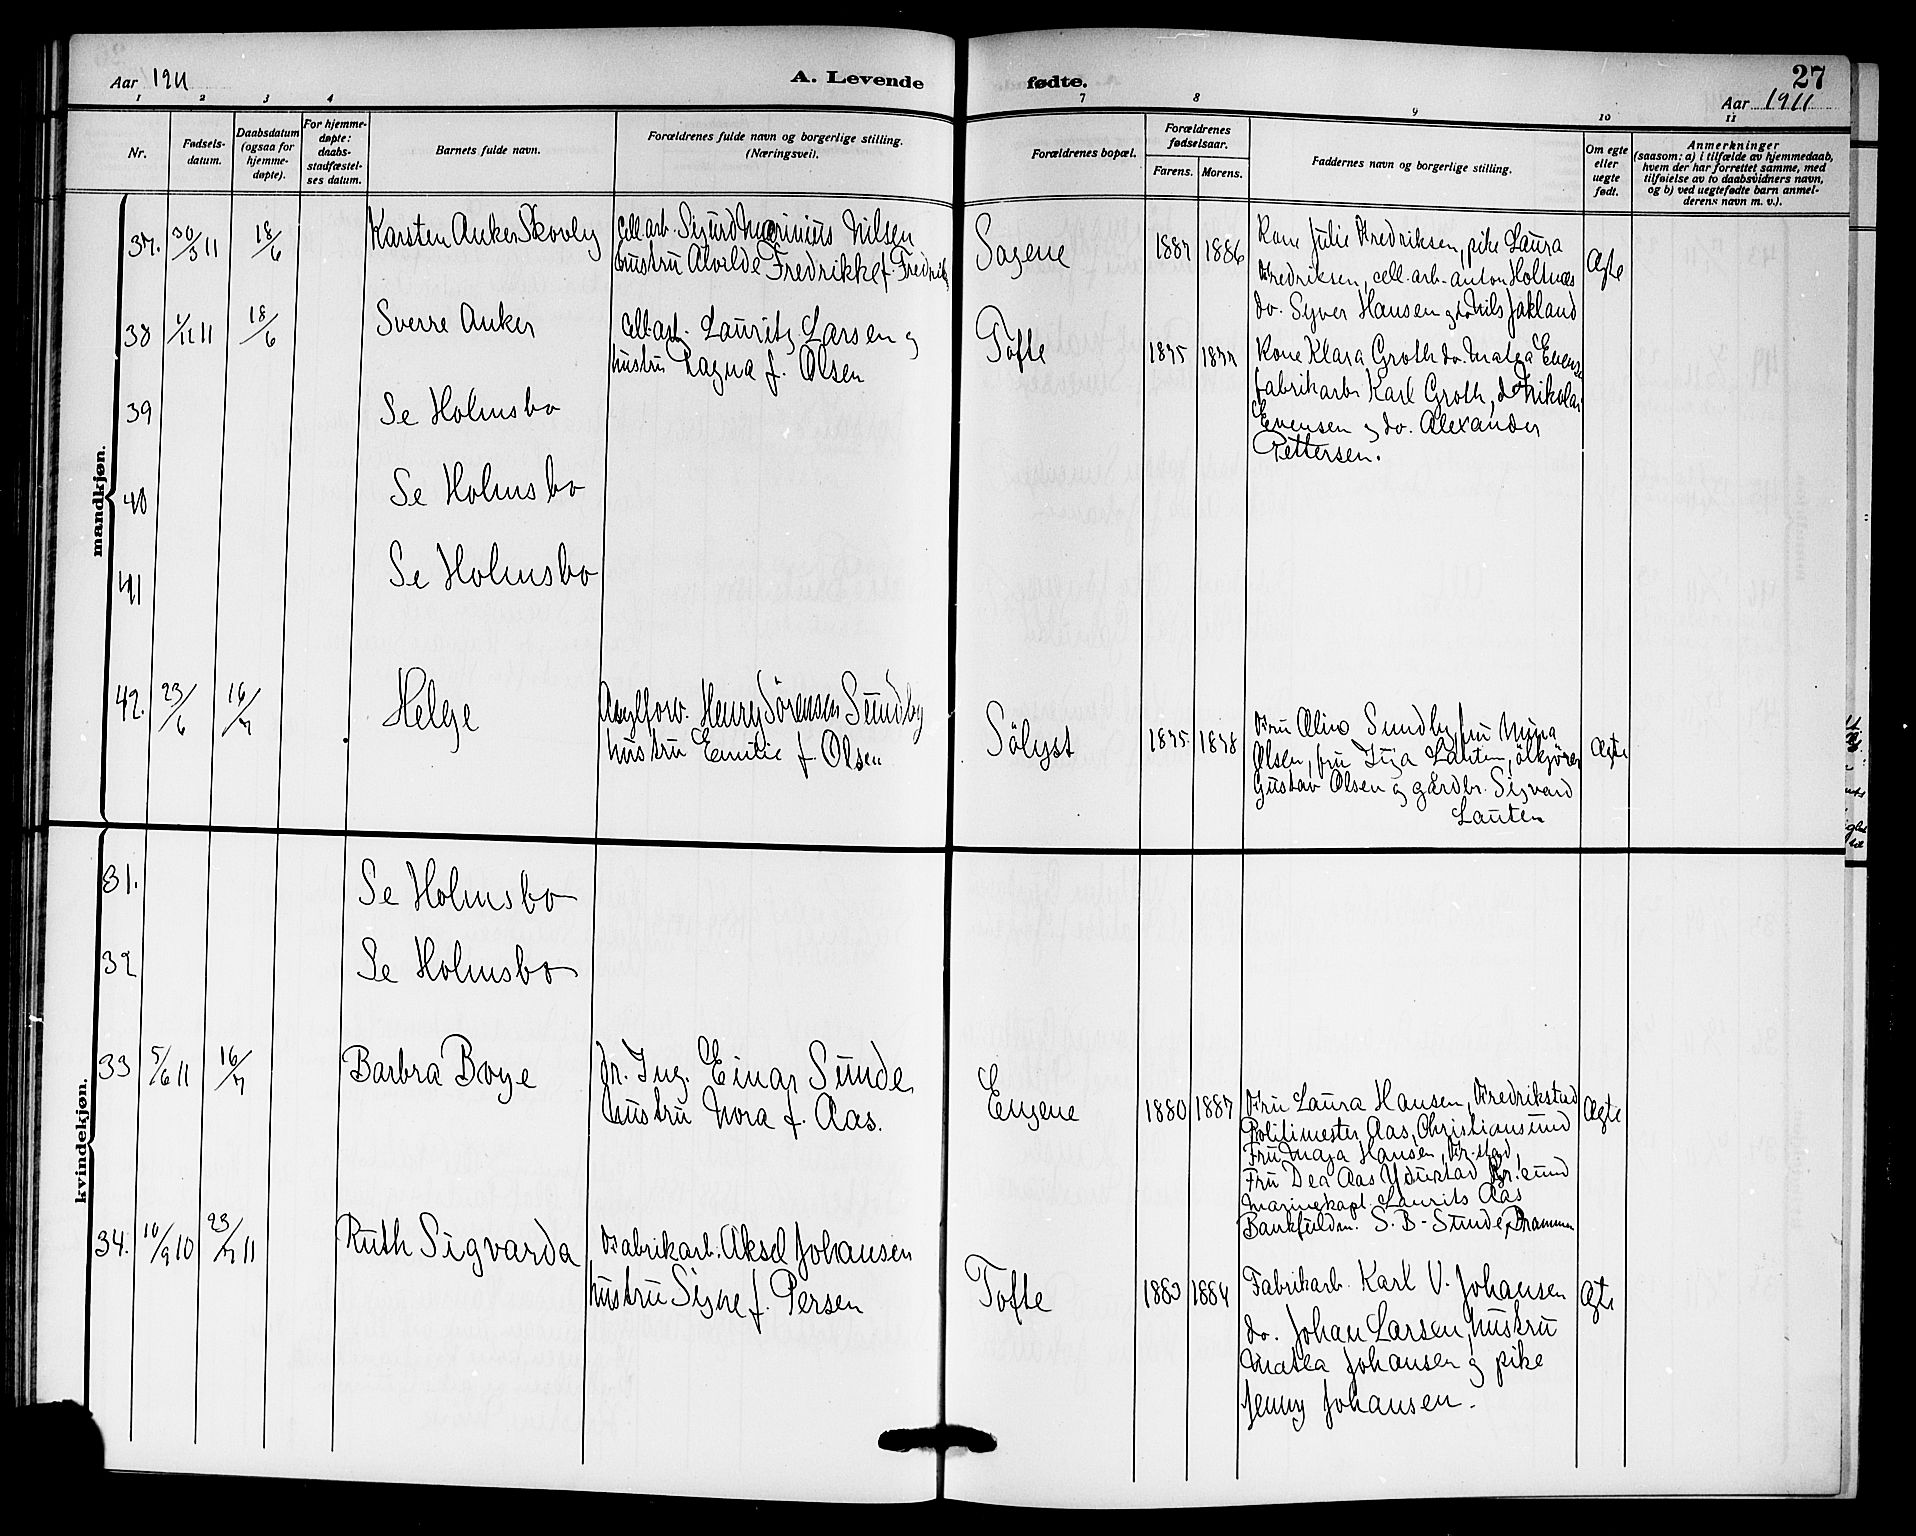 Aar 1911
A. Levende
fødte.
27
Aar 1911
1 2 3 4 7 8 9 10 11
Nr.
Fødsels-
datum.
Daabsdatum
(ogsaa for
hjemme-
døpte).
For hjemme-
døpte:
daabs-
stadfæstel-
ses datum.
Barnets fulde navn.
Forældrenes fulde navn og borgerlige stilling.
(Næringsvei).
Forældrenes bopæl.
Forældrenes
fødselsaar.
Farens. Morens.
Faddernes navn og borgerlige stilling.
Om egte
eller
uegte
født.
Anmerkninger
(saasom: a) i tilfælde av hjemmedaab,
hvem der har forrettet samme, med
tilføielse av to daabsvidners navn,
og b) ved uegtefødte barn anmel-
derens navn m. v.).
mandkjøn.
37. 30/3 11 18/6 Karsten Anker Skovly
Cell.arb. Sigurd Marinius Nilsen
hustru Alvilde Fredrikke f. Fredrik
Sagene 1887 1886
Kone Julie Fredriksen, pike Laura
Fredriksen, cell.arb. Anton Holtnæs
do. Syver Hansen og do Nils Jakland
Ægte
38 18/6 Sverre Anker
Cell.arb. Lauritz Larsen og
hustru Ragna f. Olsen
Tofte 1875 1877
Kone Klara Groth do. Matea Evense
fabrikarb. Karl Groth, do Nikolai
Evensen og do. Alexander
Pettersen.
39 Se Holmsbo
40 Se Holmsbo
41 Se Holmsbo
42. 23/6 16/7 Helge
Asylforv. Henry Sörensen Sundby
hustru Emilie f. Olsen
Sölyst 1875 1878
Fru Olive Sundby, fru Mina
Olsen, fru Inga Lauten, ölkjörer
Gustav Olsen og gårdbr. Sigvard
Lauten
Ægte
kvindekjøn.
31. Se Holmsbo
32 Se Holmsbo
33 5/6 11 16/7 Barbra Boye
Dr. Ing. Einar Sunde
hustru Nora f. Aas.
Engene 1880 1887
Fru Laura Hansen, Fredrikstad
Politimester Aas, Christiansund
Fru Maja Hansen, Fr.stad,
Fru Dea Aas Kr.sund
Marinekapt. Laurits Aas
Bankfuldm. S. B. Sunde, Drammen
Ægte
34. 10/9 10 23/7 11 Ruth Sigvarda
Fabrikarb. Aksel Johansen
hustru Signe f. Persen
Tofte 1883 1884
Fabrikarb. Karl V. Johansen
do. Johan Larsen, hustru
Matea Johansen og pike
Jenny Johansen.
Ægte